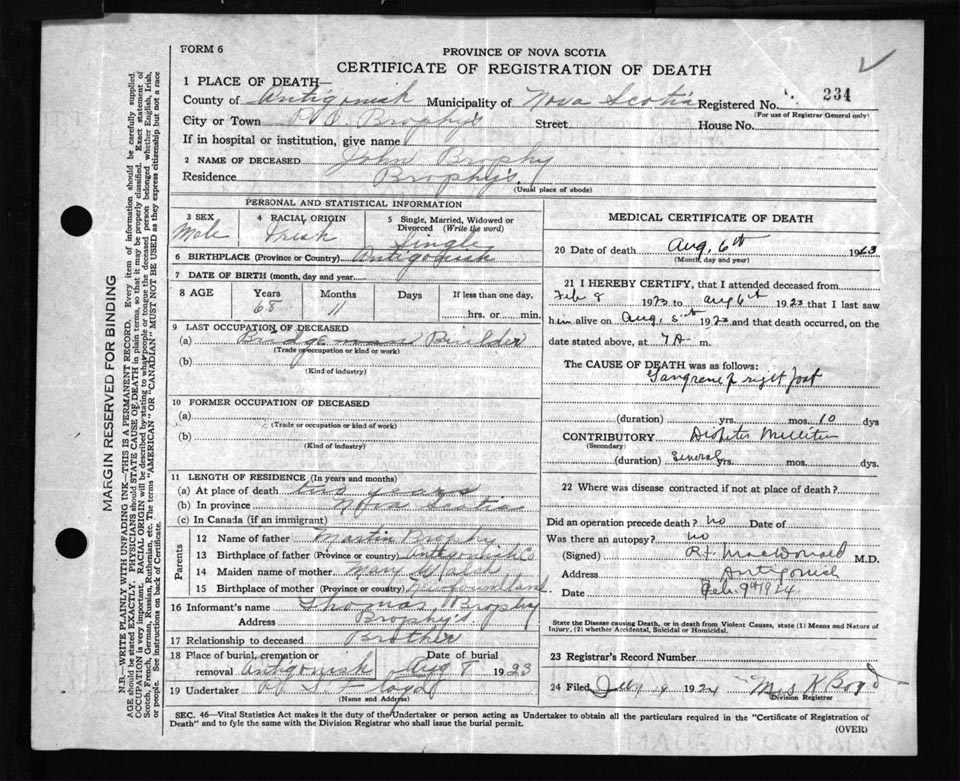 FORM 6
PROVINCE OF NOVA SCOTIA
CERTIFICATE OF REGISTRATION OF DEATH
1 PLACE OF DEATH—
County of Antigonish Municipality of Nova Scotia Registered No. 234
(For use of Registrar General only)
City or Town P.O. Brophy's Street House No.
If in hospital or institution, give name
2 NAME OF DECEASED John Brophy
Residence Brophy's.
(Usual place of abode)
PERSONAL AND STATISTICAL INFORMATION
3 SEX Male
4 RACIAL ORIGIN Irish
5 Single, Married, Widowed or Divorced (Write the word) Single
6 BIRTHPLACE (Province or Country) Antigonish
7 DATE OF BIRTH (month, day and year)
8 AGE Years Months Days If less than one day,
68 11 hrs. or min.
9 LAST OCCUPATION OF DECEASED
(a) Bridge man Builder
(Trade or occupation or kind or work)
(b)
(Kind of industry)
10 FORMER OCCUPATION OF DECEASED
(a)
(Trade or occupation or kind of work)
(b)
(Kind of industry)
11 LENGTH OF RESIDENCE (In years and months)
(a) At place of death years
(b) In province Nova Scotia
(c) In Canada (if an immigrant)
Parents
12 Name of father Martin Brophy
13 Birthplace of father (Province or country) Antigonish Co
14 Maiden name of mother Mary Walsh
15 Birthplace of mother (Province or country) Newfoundland
16 Informant's name Thomas Brophy
Address Brophy's
17 Relationship to deceased Brother
18 Place of burial, cremation or Date of burial
removal Antigonish Aug 8 1923
19 Undertaker
(Name and Address)
MEDICAL CERTIFICATE OF DEATH
20 Date of death Aug, 6th 1923
(Month, day and year)
21 I HEREBY CERTIFY, that I attended deceased from
Feb 8 1923 to Aug 6th 1923 that I last saw
him alive on Aug, 5th 1923 and that death occurred, on the
date stated above, at 7 A m.
The CAUSE OF DEATH was as follows:
Gangrene of right foot
(duration) yrs. mos. 10 dys
CONTRIBUTORY
(Secondary)
(duration) Several yrs. mos. dys.
22 Where was disease contracted if not at place of death?
Did an operation precede death? no Date of
Was there an autopsy? no
(Signed) R.F. MacDonald M.D.
Address Antigonish
Date Feb. 9th 1924
State the Disease causing Death, or in death from Violent Causes, state (1) Means and Nature of
Injury, (2) whether Accidental, Suicidal or Homicidal.
23 Registrar's Record Number
24 Filed 1924 Mrs K Boyd
Division Registrar
SEC. 46—Vital Statistics Act makes it the duty of the Undertaker or person acting as Undertaker to obtain all the particulars required in the "Certificate of Registration of
Death" and to fyle the same with the Division Registrar who shall issue the burial permit.
(OVER)
MARGIN RESERVED FOR BINDING
N.B.—WRITE PLAINLY WITH UNFADING INK—THIS IS A PERMANENT RECORD. Every item of information should be carefully supplied.
AGE should be stated EXACTLY. PHYSICIANS should STATE CAUSE OF DEATH in plain terms, so that it may be properly classified. Exact statement of
OCCUPATION is very important. RACIAL ORIGIN will be described by stating to what people or tongue the deceased person belonged whether English, Irish,
Scotch, French, German, Russian, Ruthenian, etc. The terms "AMERICAN" OR "CANADIAN" MUST NOT BE USED as they express citizenship but not a race
or people. See instructions on back of Certificate.